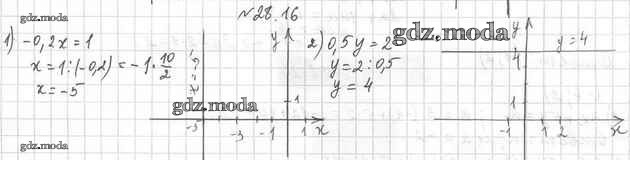 №28.16
gdz.moda
1) -0,2x = 1
x = 1:(-0,2) = -1·10/2
x = -5
x = -5
y
1
-5 -3 -1 1 x
gdz.moda
gdz.moda
2) 0,5y = 2
y = 2:0,5
y = 4
gdz.moda
y
y = 4
4
1
-1 1 2 x